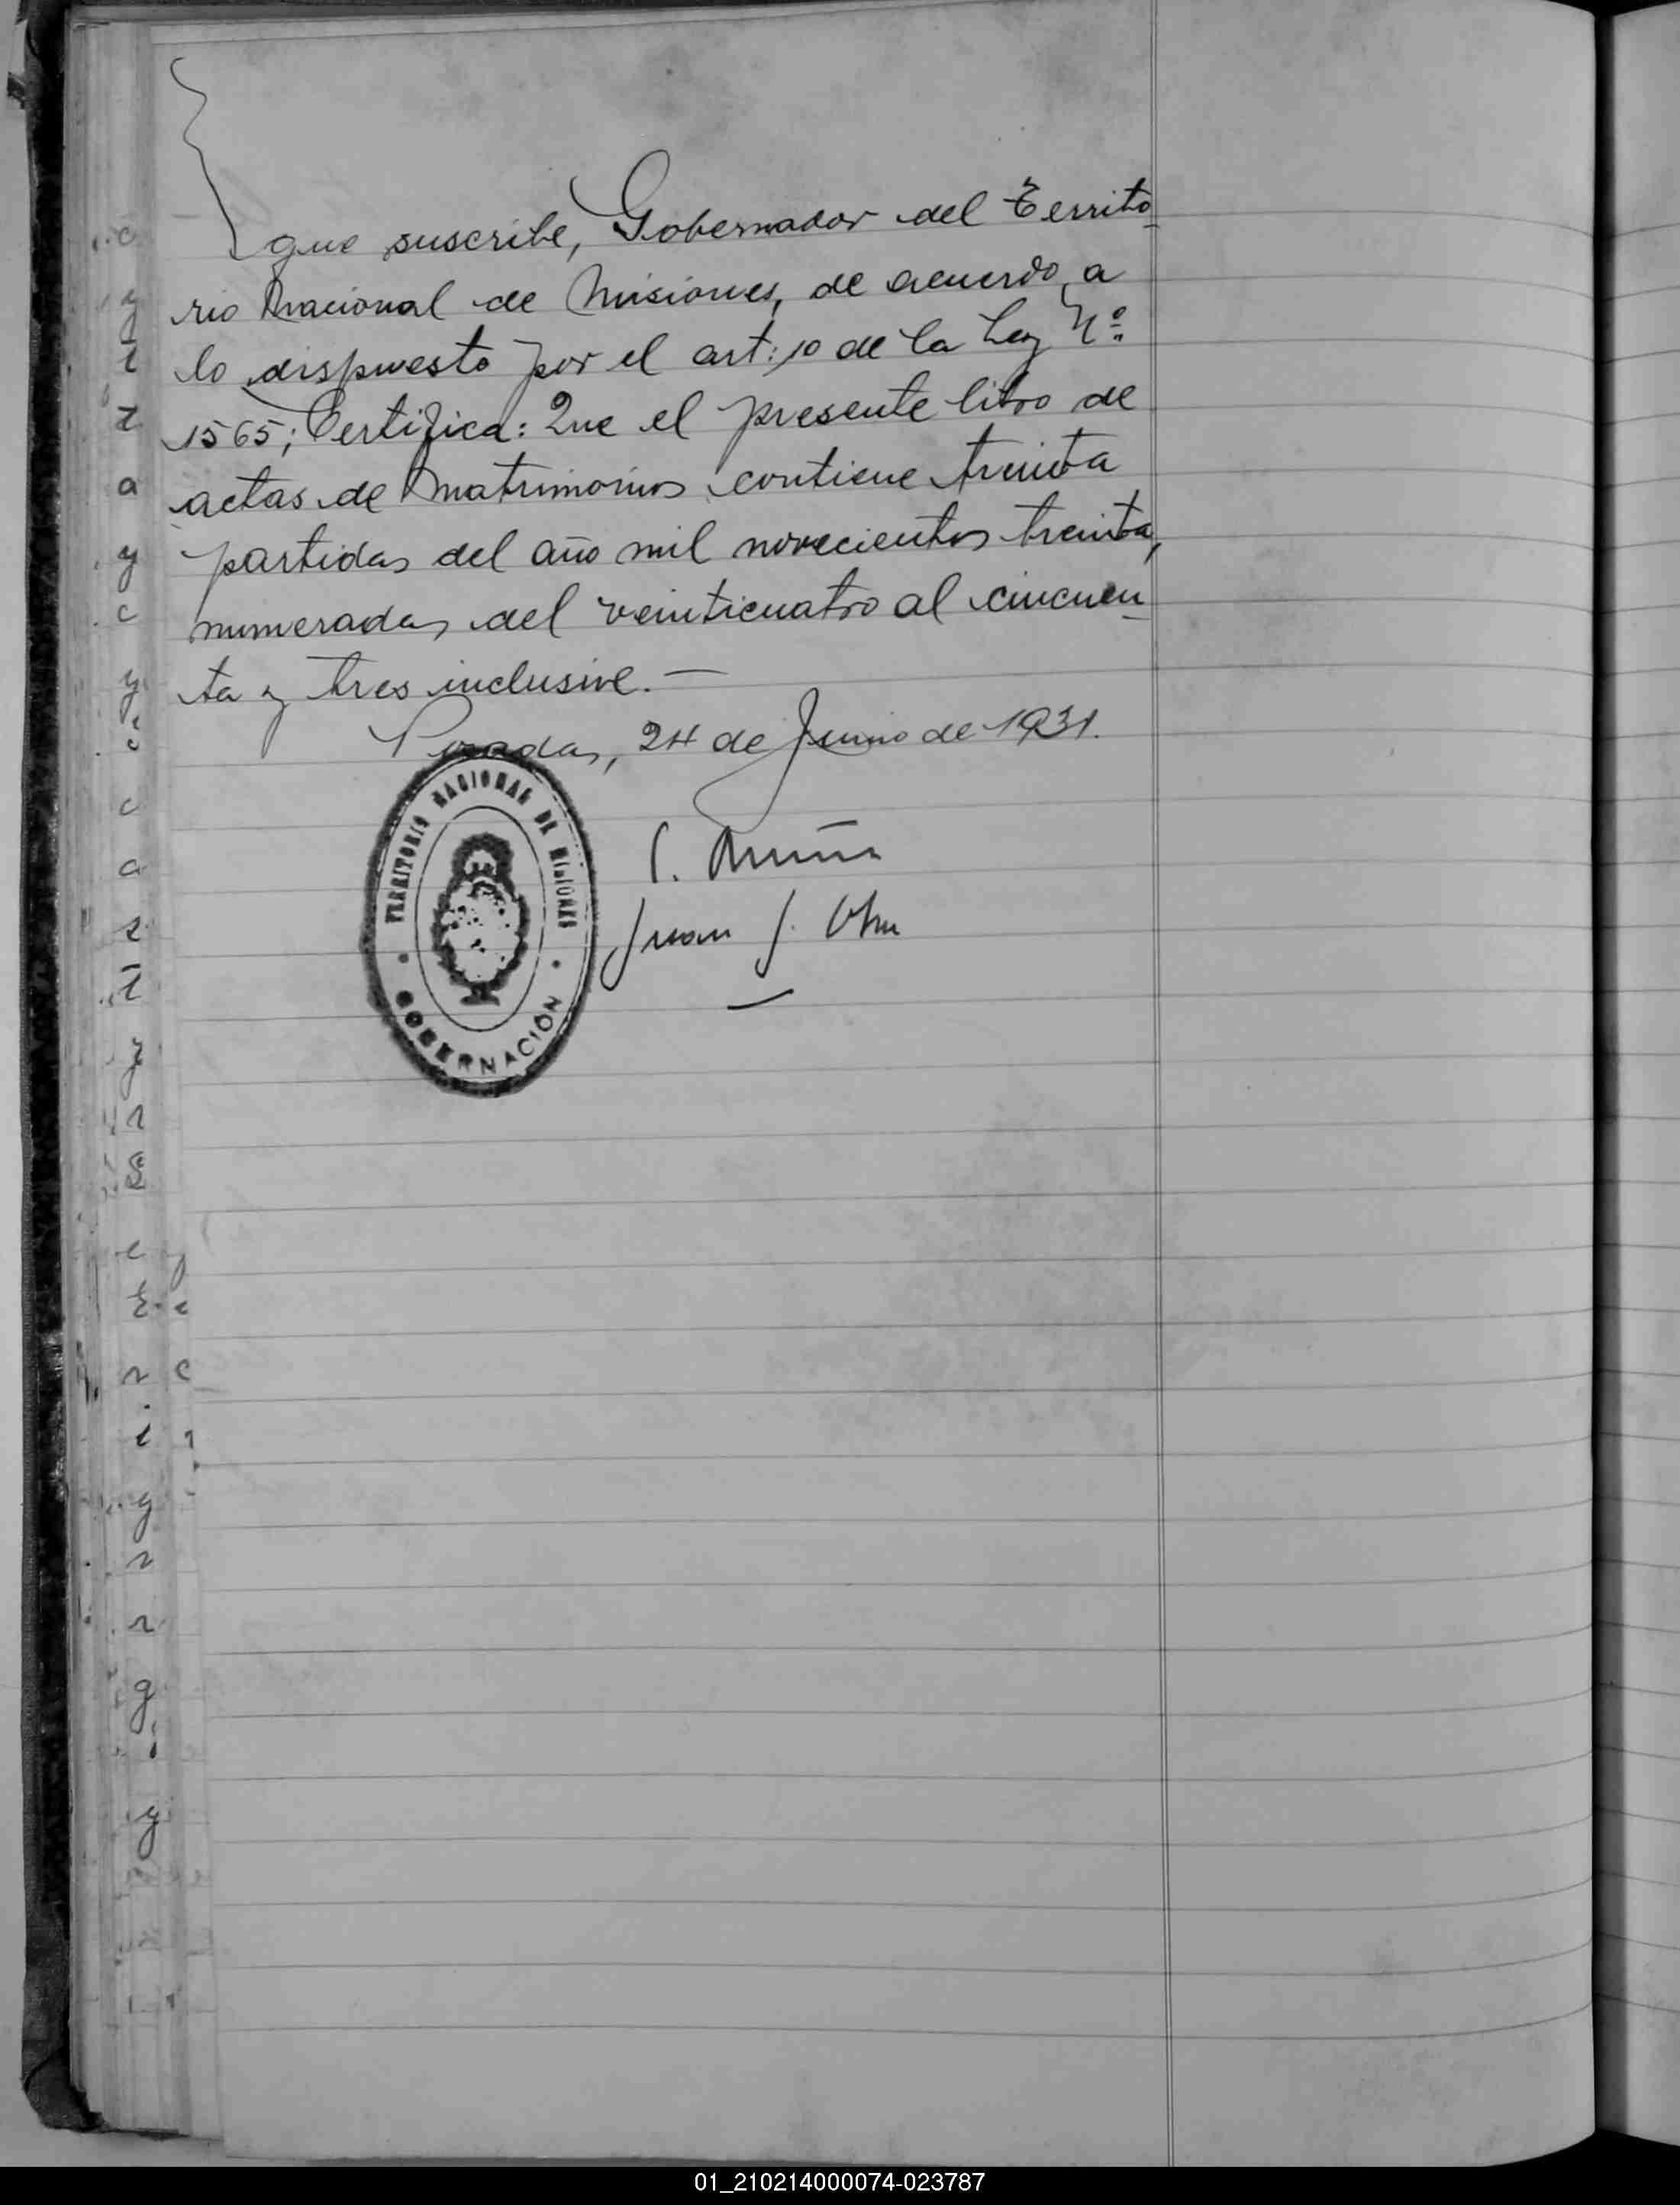 que suscribe, Gobernador del Territo-
rio Nacional de Misiones, de acuerdo a
lo dispuesto por el art: 10 de la Ley Nº
1565; Certifica: Que el presente libro de
actas de Matrimonios contiene treinta
partidas del año mil novecientos treinta,
numeradas del veinticuatro al cincuen-
ta y tres inclusive.—
Posadas, 24 de Junio de 1931.
TERRITORIO NACIONAL DE MISIONES
GOBERNACIÓN
Juan J.
01_210214000074-023787